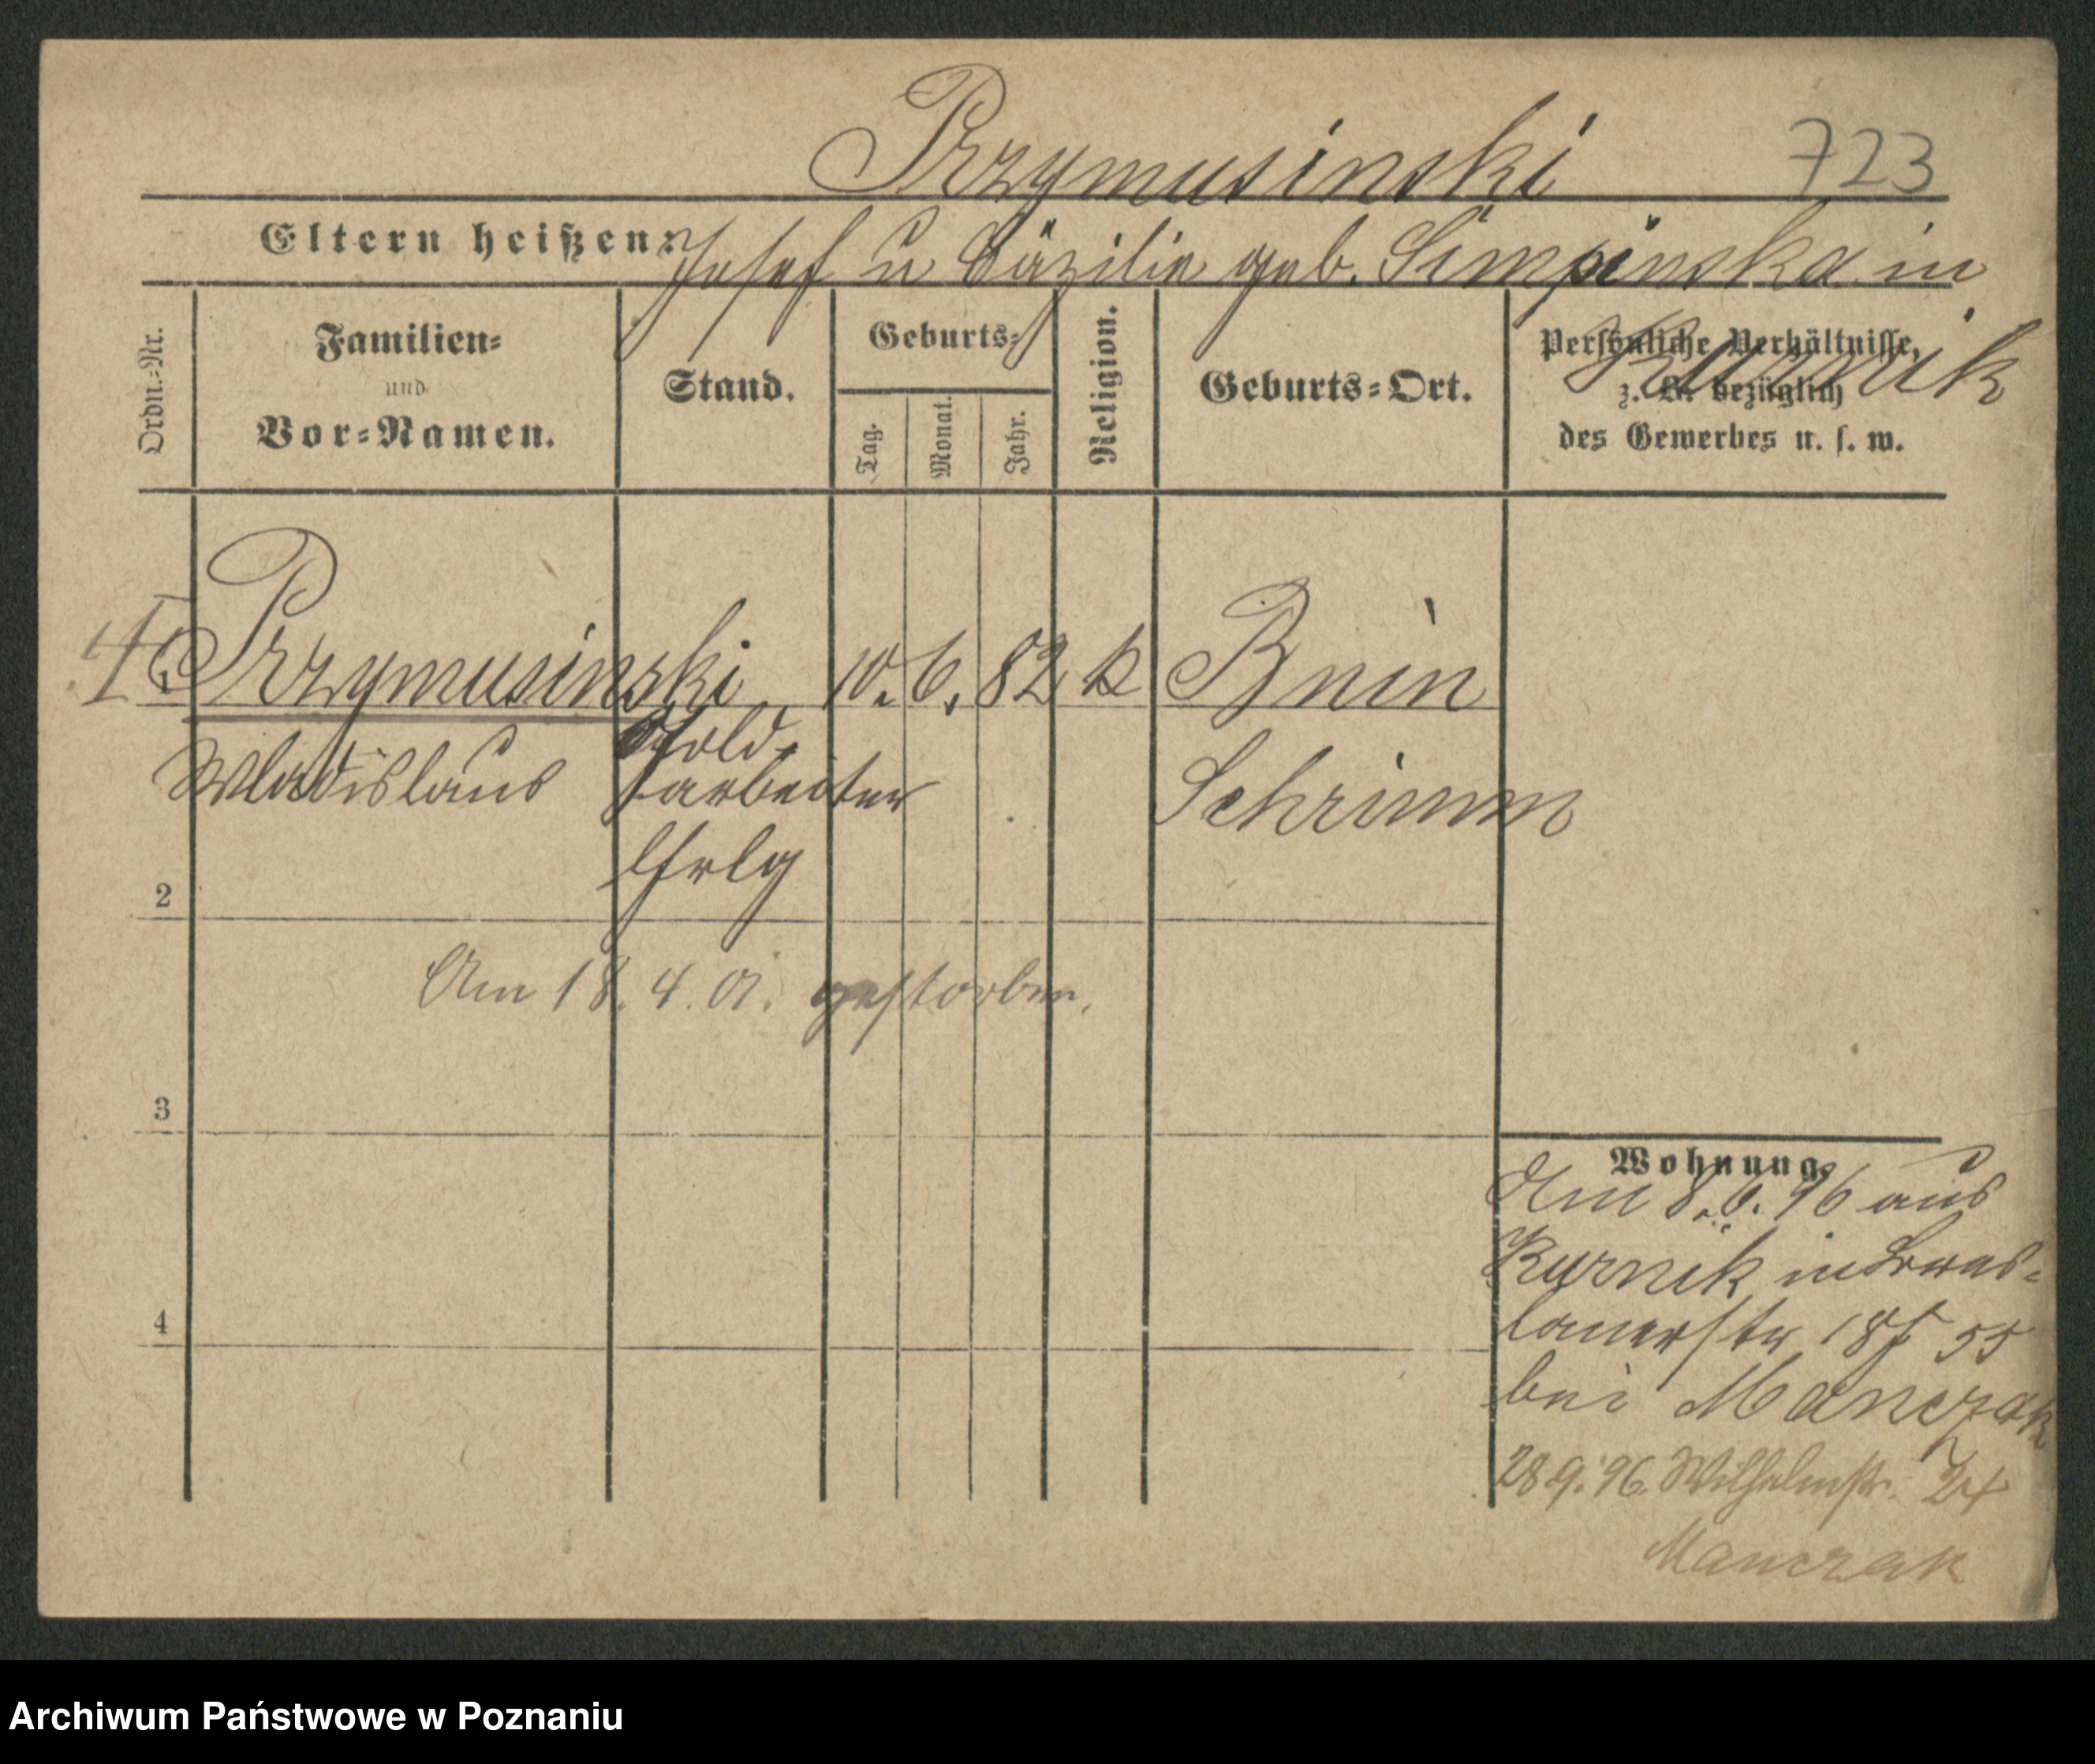 Przymusinski 723
Eltern heißen: Josef u Cäzilie geb. Simpinska in
Kurnik
Ordn.-Nr.
Familien-
und
Vor-Namen.
Stand.
Geburts-
Tag.
Monat.
Jahr.
Religion.
Geburts-Ort.
Persönliche Verhältnisse,
z. B. bezüglich
des Gewerbes u. s. w.
1 Przymusinski 10. 6. 82 k Bnin
Wladislaus Gold-
arbeiter Schrimm
Lehrlg
2
Am 18. 4. 01. gestorben.
3
4
Wohnung.
Am 8. 6. 96 aus
Kurnik in Bres-
lauerstr 18/ 55
bei Manczak
28 9. 96. Wilhelmstr. 24
Manczak
Archiwum Państwowe w Poznaniu